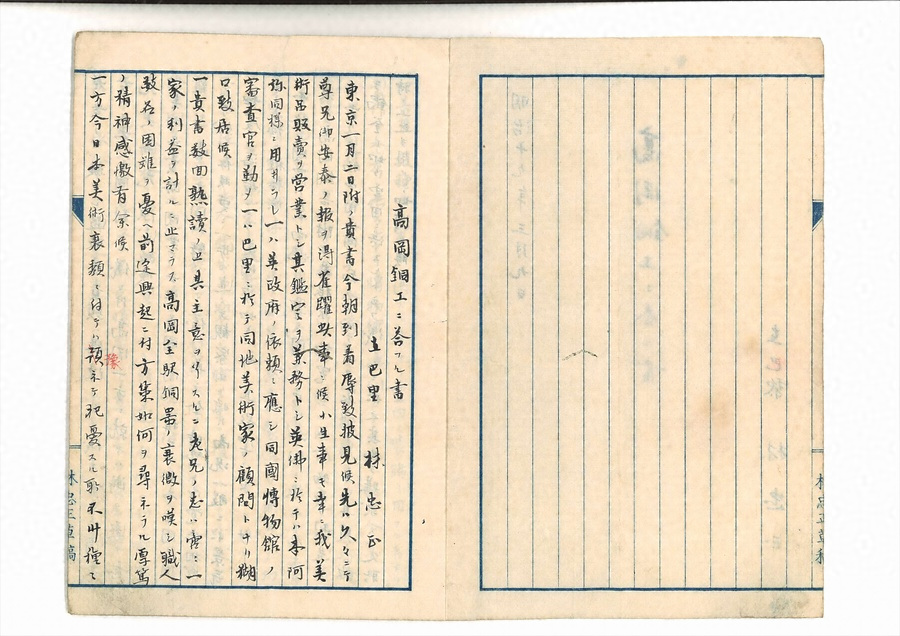 高岡銅工ニ答フル書
在巴里 林忠正
東京一月二日附ノ貴書今朝到着辱致披見候先以久々ニテ
尊兄御安泰ノ報ヲ得雀躍此事ニ候小生事モ幸ニ我美
術品販賣ヲ営業トシ其鑑定ヲ業務トシ英佛ニ於テハ
同様ニ用ヰラレ一ハ英政府ノ依頼ニ應シ同國博物館ノ
審査官ヲ勤メ一ハ巴里ニ於テ同地美術家ノ顧問トナリ糊
口致居候
一貴書数回熟讀ノ上其主意ヲ学スルニ老兄ノ志ハ啻ニ一
家ノ利益ヲ計ルニ止マラス高岡全駅銅器ノ衰微ヲ嘆シ職人
致名ノ困難ヲ憂ヘ前途興起ニ付方策如何ヲ尋ネラル厚篤
ノ精神感激有余候
一方今日本美術衰頽ニ付テハ予豫ネテ杞憂スル所不少種々
林忠正草稿